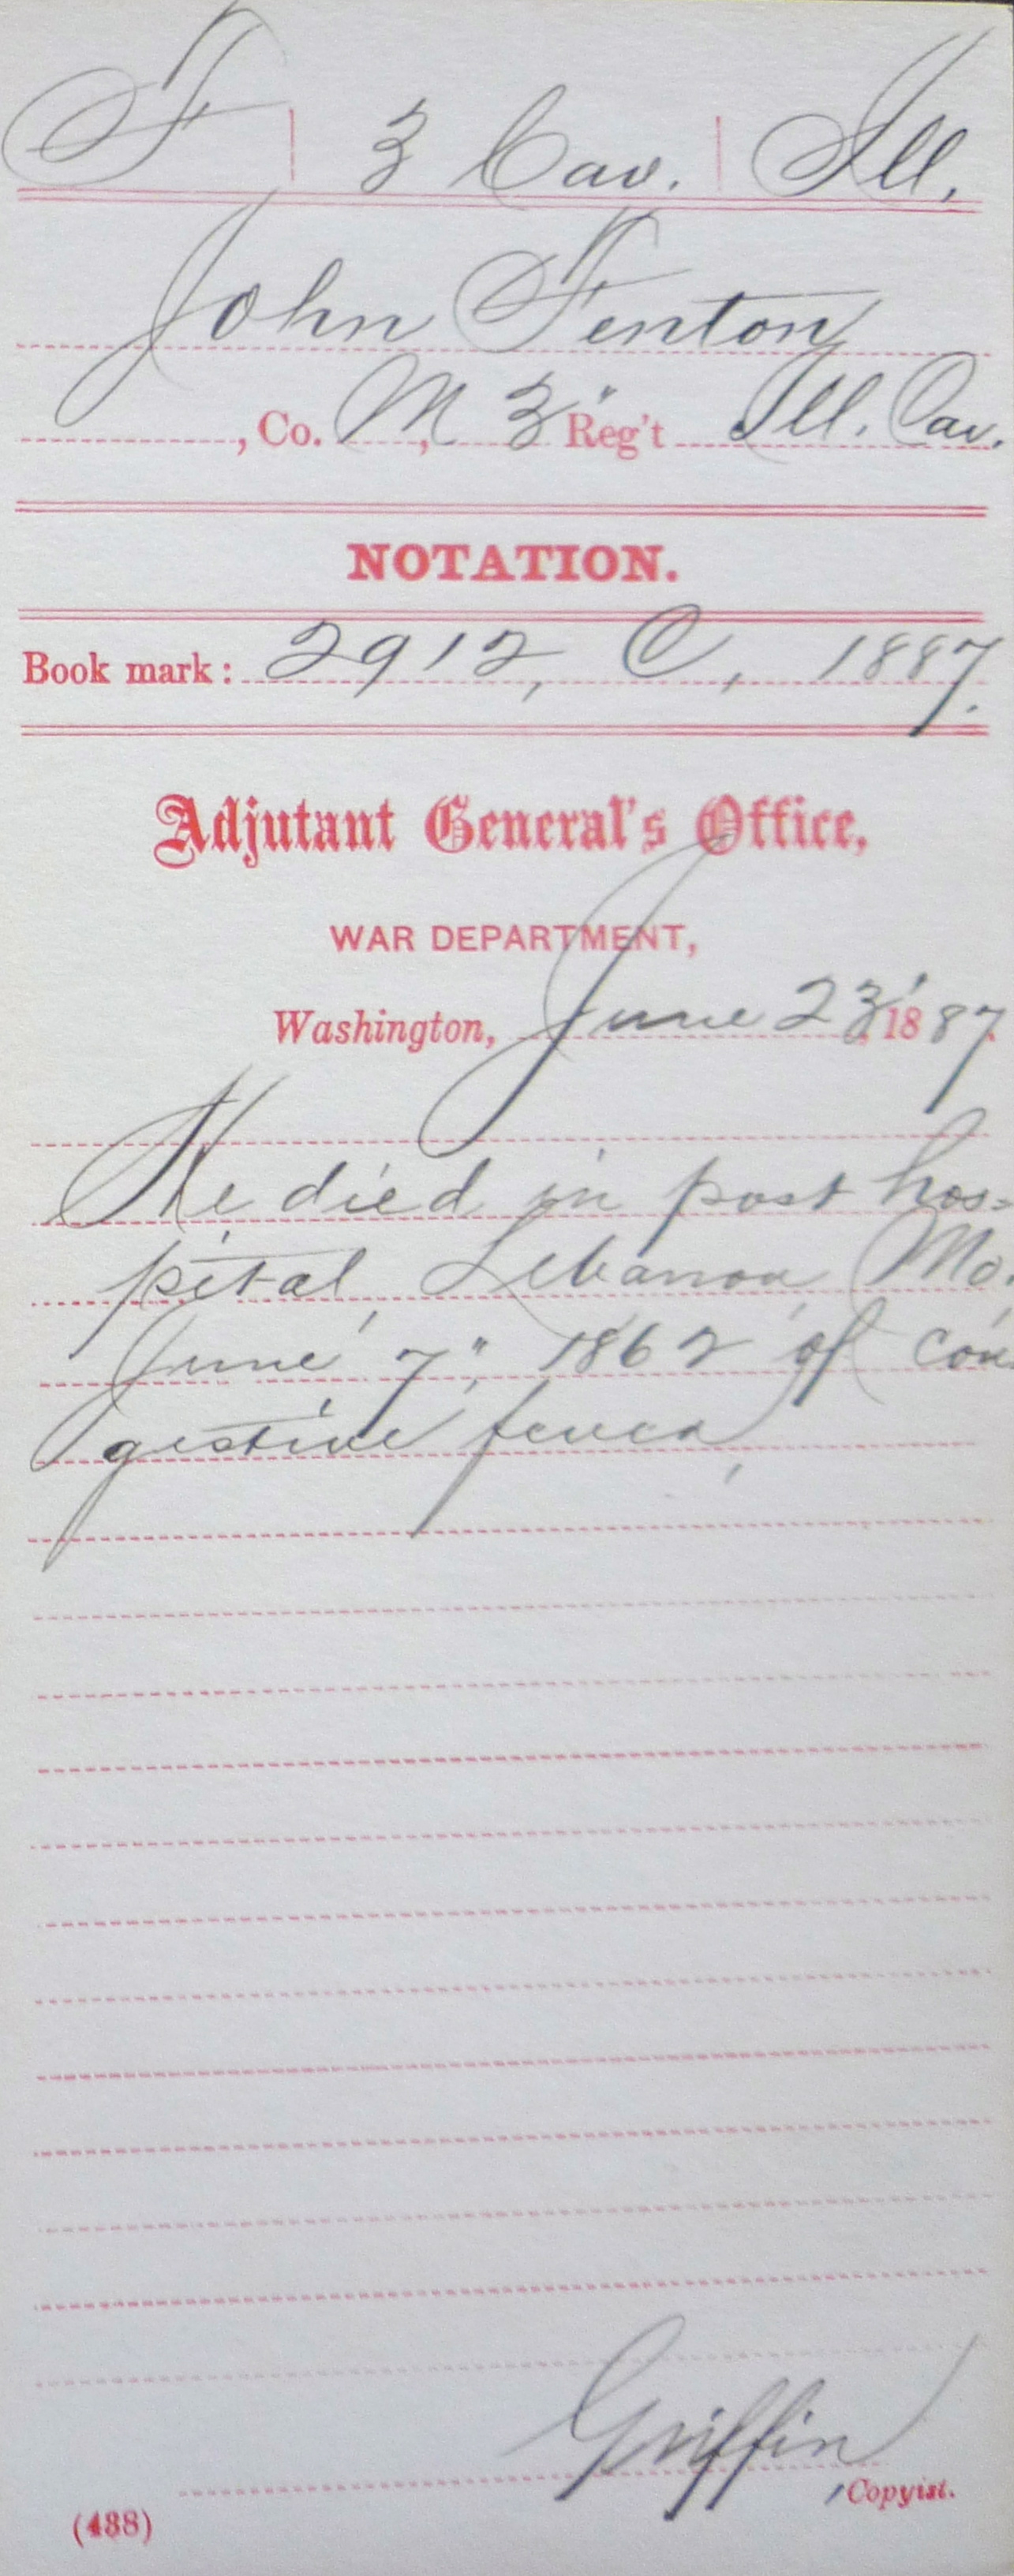 F | 3 Cav. | Ill.
John Fenton
, Co. M, 3" Reg't Ill. Cav.
NOTATION.
Book mark: 2912, C, 1887.
Adjutant General's Office,
WAR DEPARTMENT,
Washington, June 23', 1887.
He died in post hos=
pital, Lebanon, Mo.
June 7", 1862 of con
gestive fever,
Griffin
, Copyist.
(488)